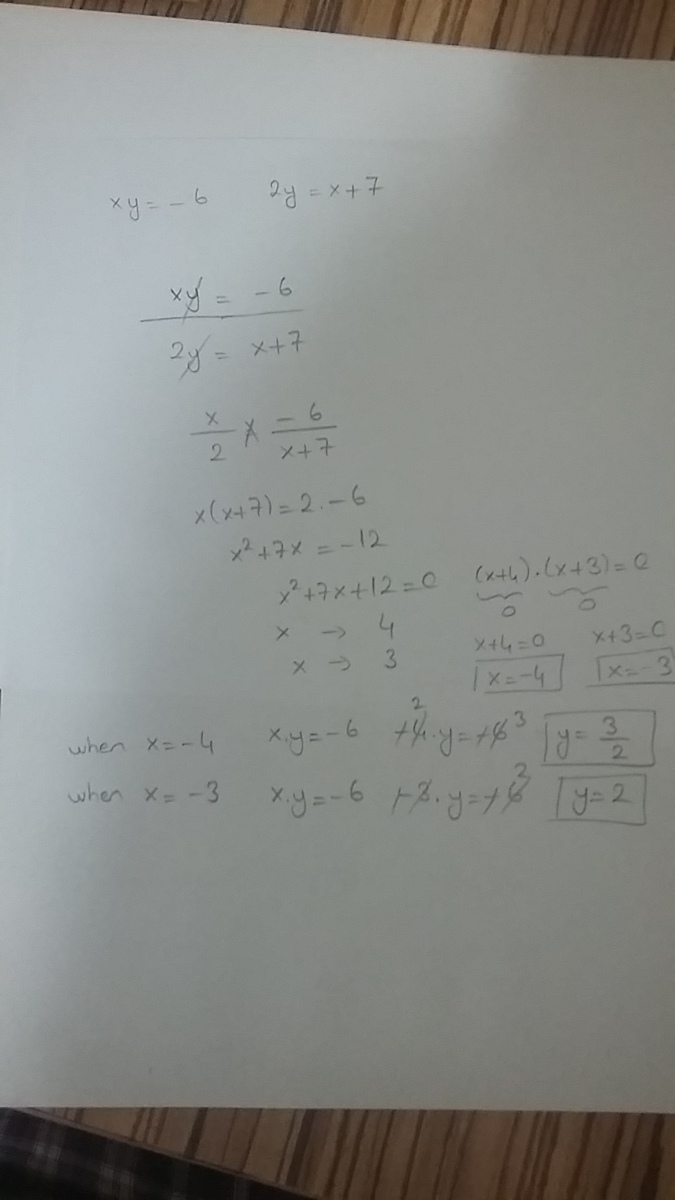 xy = -6 2y = x+7
xy = -6
2y = x+7
x/2 × -6/x+7
x(x+7) = 2.-6
x²+7x = -12
x²+7x+12=0 (x+4).(x+3)=0
0 0
x → 4 x+4=0 x+3=0
x → 3 x=-4 x=-3
when x=-4 x.y=-6 -4.y=-6 2 3 y=3/2
when x=-3 x.y=-6 -3.y=-6 2 y=2